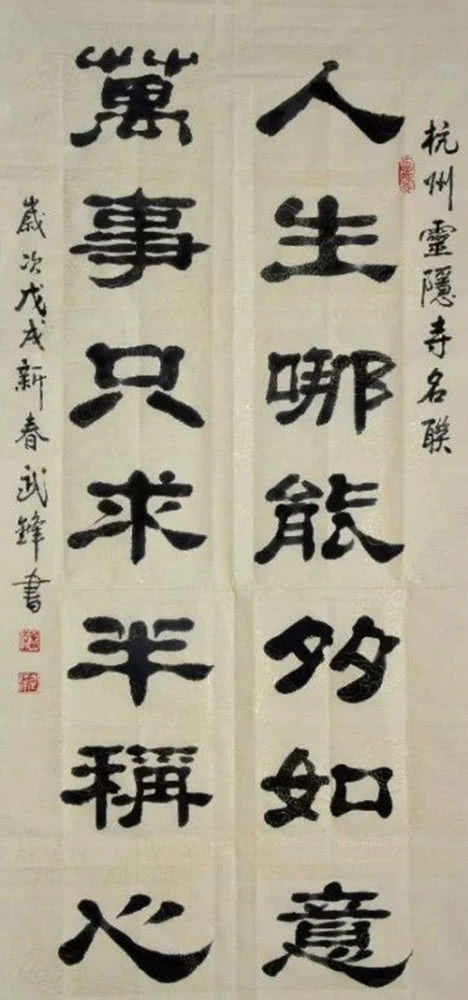 杭州靈隱寺名联
人生哪能多如意
萬事只求半稱心
歲次戊戌新春武鋒書